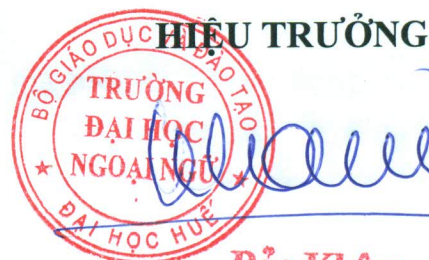 HIỆU TRƯỞNG
BỘ GIÁO DỤC VÀ ĐÀO TẠO
TRƯỜNG
ĐẠI HỌC
NGOẠI NGỮ
ĐẠI HỌC HUẾ